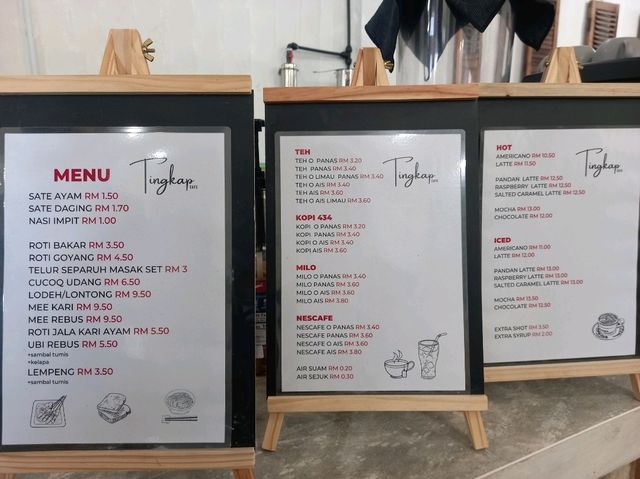 MENU
Tingkap
CAFE
SATE AYAM RM 1.50
SATE DAGING RM 1.70
NASI IMPIT RM 1.00
ROTI BAKAR RM 3.50
ROTI GOYANG RM 4.50
TELUR SEPARUH MASAK SET RM 3
CUCOQ UDANG RM 6.50
LODEH/LONTONG RM 9.50
MEE KARI RM 9.50
MEE REBUS RM 9.50
ROTI JALA KARI AYAM RM 5.50
UBI REBUS RM 5.50
+sambal tumis
+kelapa
LEMPENG RM 3.50
+sambal tumis
Tingkap
CAFE
TEH
TEH O PANAS RM 3.20
TEH PANAS RM 3.40
TEH O LIMAU PANAS RM 3.40
TEH O AIS RM 3.40
TEH AIS RM 3.60
TEH O AIS LIMAU RM 3.60
KOPI 434
KOPI O PANAS RM 3.20
KOPI PANAS RM 3.40
KOPI O AIS RM 3.40
KOPI AIS RM 3.60
MILO
MILO O PANAS RM 3.40
MILO PANAS RM 3.60
MILO O AIS RM 3.60
MILO AIS RM 3.80
NESCAFE
NESCAFE O PANAS RM 3.40
NESCAFE PANAS RM 3.60
NESCAFE O AIS RM 3.60
NESCAFE AIS RM 3.80
AIR SUAM RM 0.20
AIR SEJUK RM 0.30
Tingkap
CAFE
HOT
AMERICANO RM 10.50
LATTE RM 11.50
PANDAN LATTE RM 12.50
RASPBERRY LATTE RM 12.50
SALTED CARAMEL LATTE RM 12.50
MOCHA RM 13.00
CHOCOLATE RM 12.00
ICED
AMERICANO RM 11.00
LATTE RM 12.00
PANDAN LATTE RM 13.00
RASPBERRY LATTE RM 13.00
SALTED CARAMEL LATTE RM 13.00
MOCHA RM 13.50
CHOCOLATE RM 12.50
EXTRA SHOT RM 3.50
EXTRA SYRUP RM 2.00